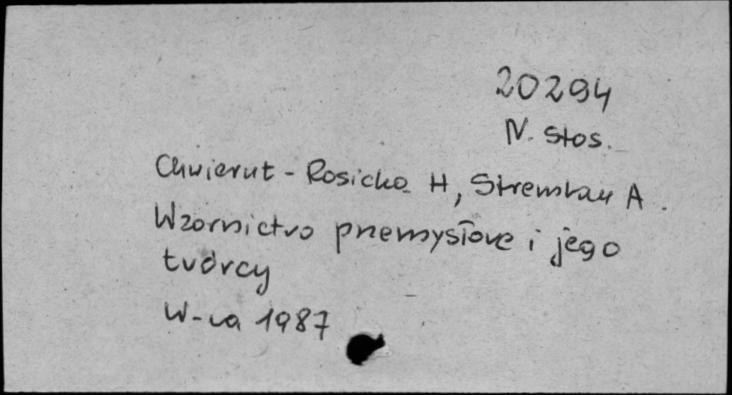 20294
N. stos.
Chwierut-Rosicka H, Stremłau A.
Wzornictwo przemysłowe i jego
twórcy
W-wa 1987